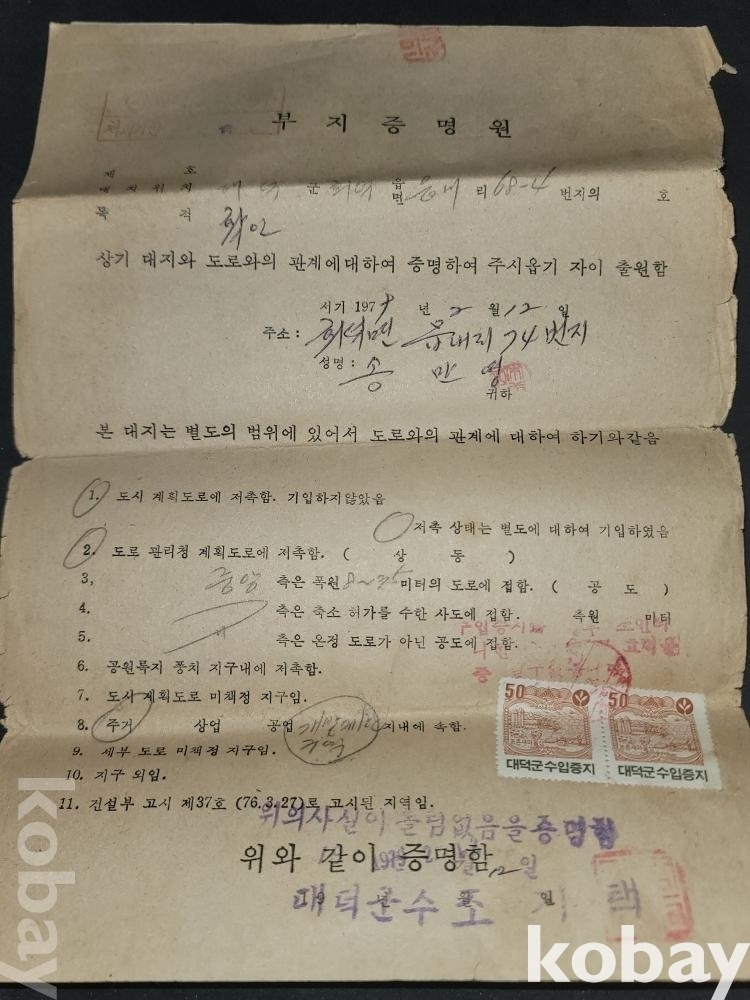 부지증명원
제 호
대지위치 대덕 군 회덕 읍면 읍내 리 68-4 번지의 호
목 적 확인
상기 대지와 도로와의 관계에대하여 증명하여 주시옵기 자이 출원함
서기 197 년 2 월 12 일
주소: 회덕면 읍내리 74번지
성명: 송 만 영
귀하
본 대지는 별도의 범위에 있어서 도로와의 관계에 대하여 하기와같음
1. 도시 계획도로에 저촉함. 기입하지않았음
저촉 상태는 별도에 대하여 기입하였음
2. 도로 관리청 계획도로에 저촉함. ( 상 동 )
3, 측은 폭원 8~35 미터의 도로에 접함. ( 공 도 )
4. 측은 축소 허가를 수한 사도에 접함. 측원 미터
5. 측은 온정 도로가 아닌 공도에 접함.
6. 공원록지 풍치 지구내에 저촉함.
7. 도시 계획도로 미책정 지구임.
8. 주거 상업 공업 개발제한구역 지내에 속함.
9. 세부 도로 미책정 지구임.
10. 지구 외임.
11. 건설부 고시 제37호 (76.3.27)로 고시된 지역임.
50 50
대덕군수입증지 대덕군수입증지
위의사실이 틀림없음을증명함
위와 같이 증명함
197 2 12 일
19 년 월 일
대덕군수 조 택
kobay
kobay